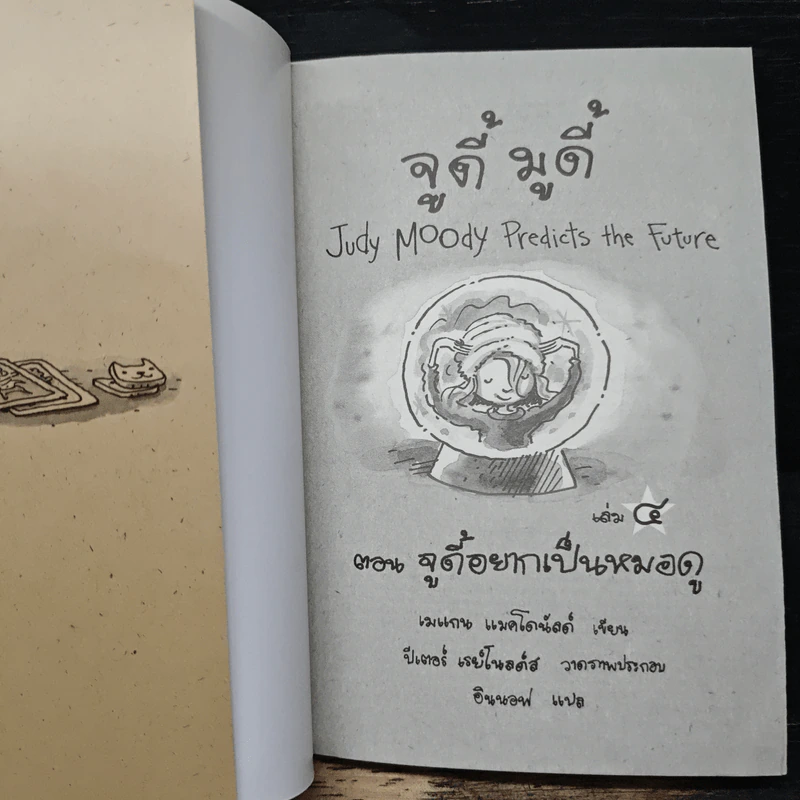 จูดี้ มูดี้
Judy MOODY Predicts the Future
เล่ม ๔
ตอน จูดี้อยากเป็นหมอดู
เมแกน แมคโดนัลด์ เขียน
ปีเตอร์ เรย์โนลด์ส วาดภาพประกอบ
อินนอฟ แปล